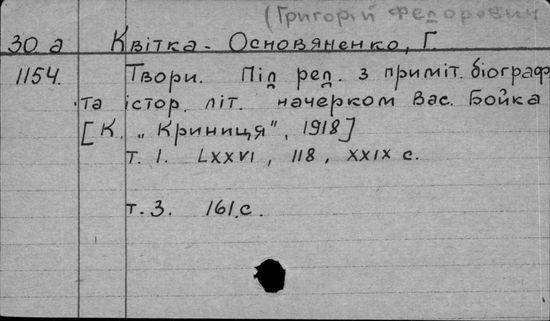 (Григорій Федорович
30 а Квітка-Основяненко, Г.
1154. Твори. Під ред. з приміт. біограф.
та істор. літ. начерком Вас. Бойка
[К. „Криниця", 1918]
т. 1. LXXVI, 118, XXIX с.
т. 3. 161 с.